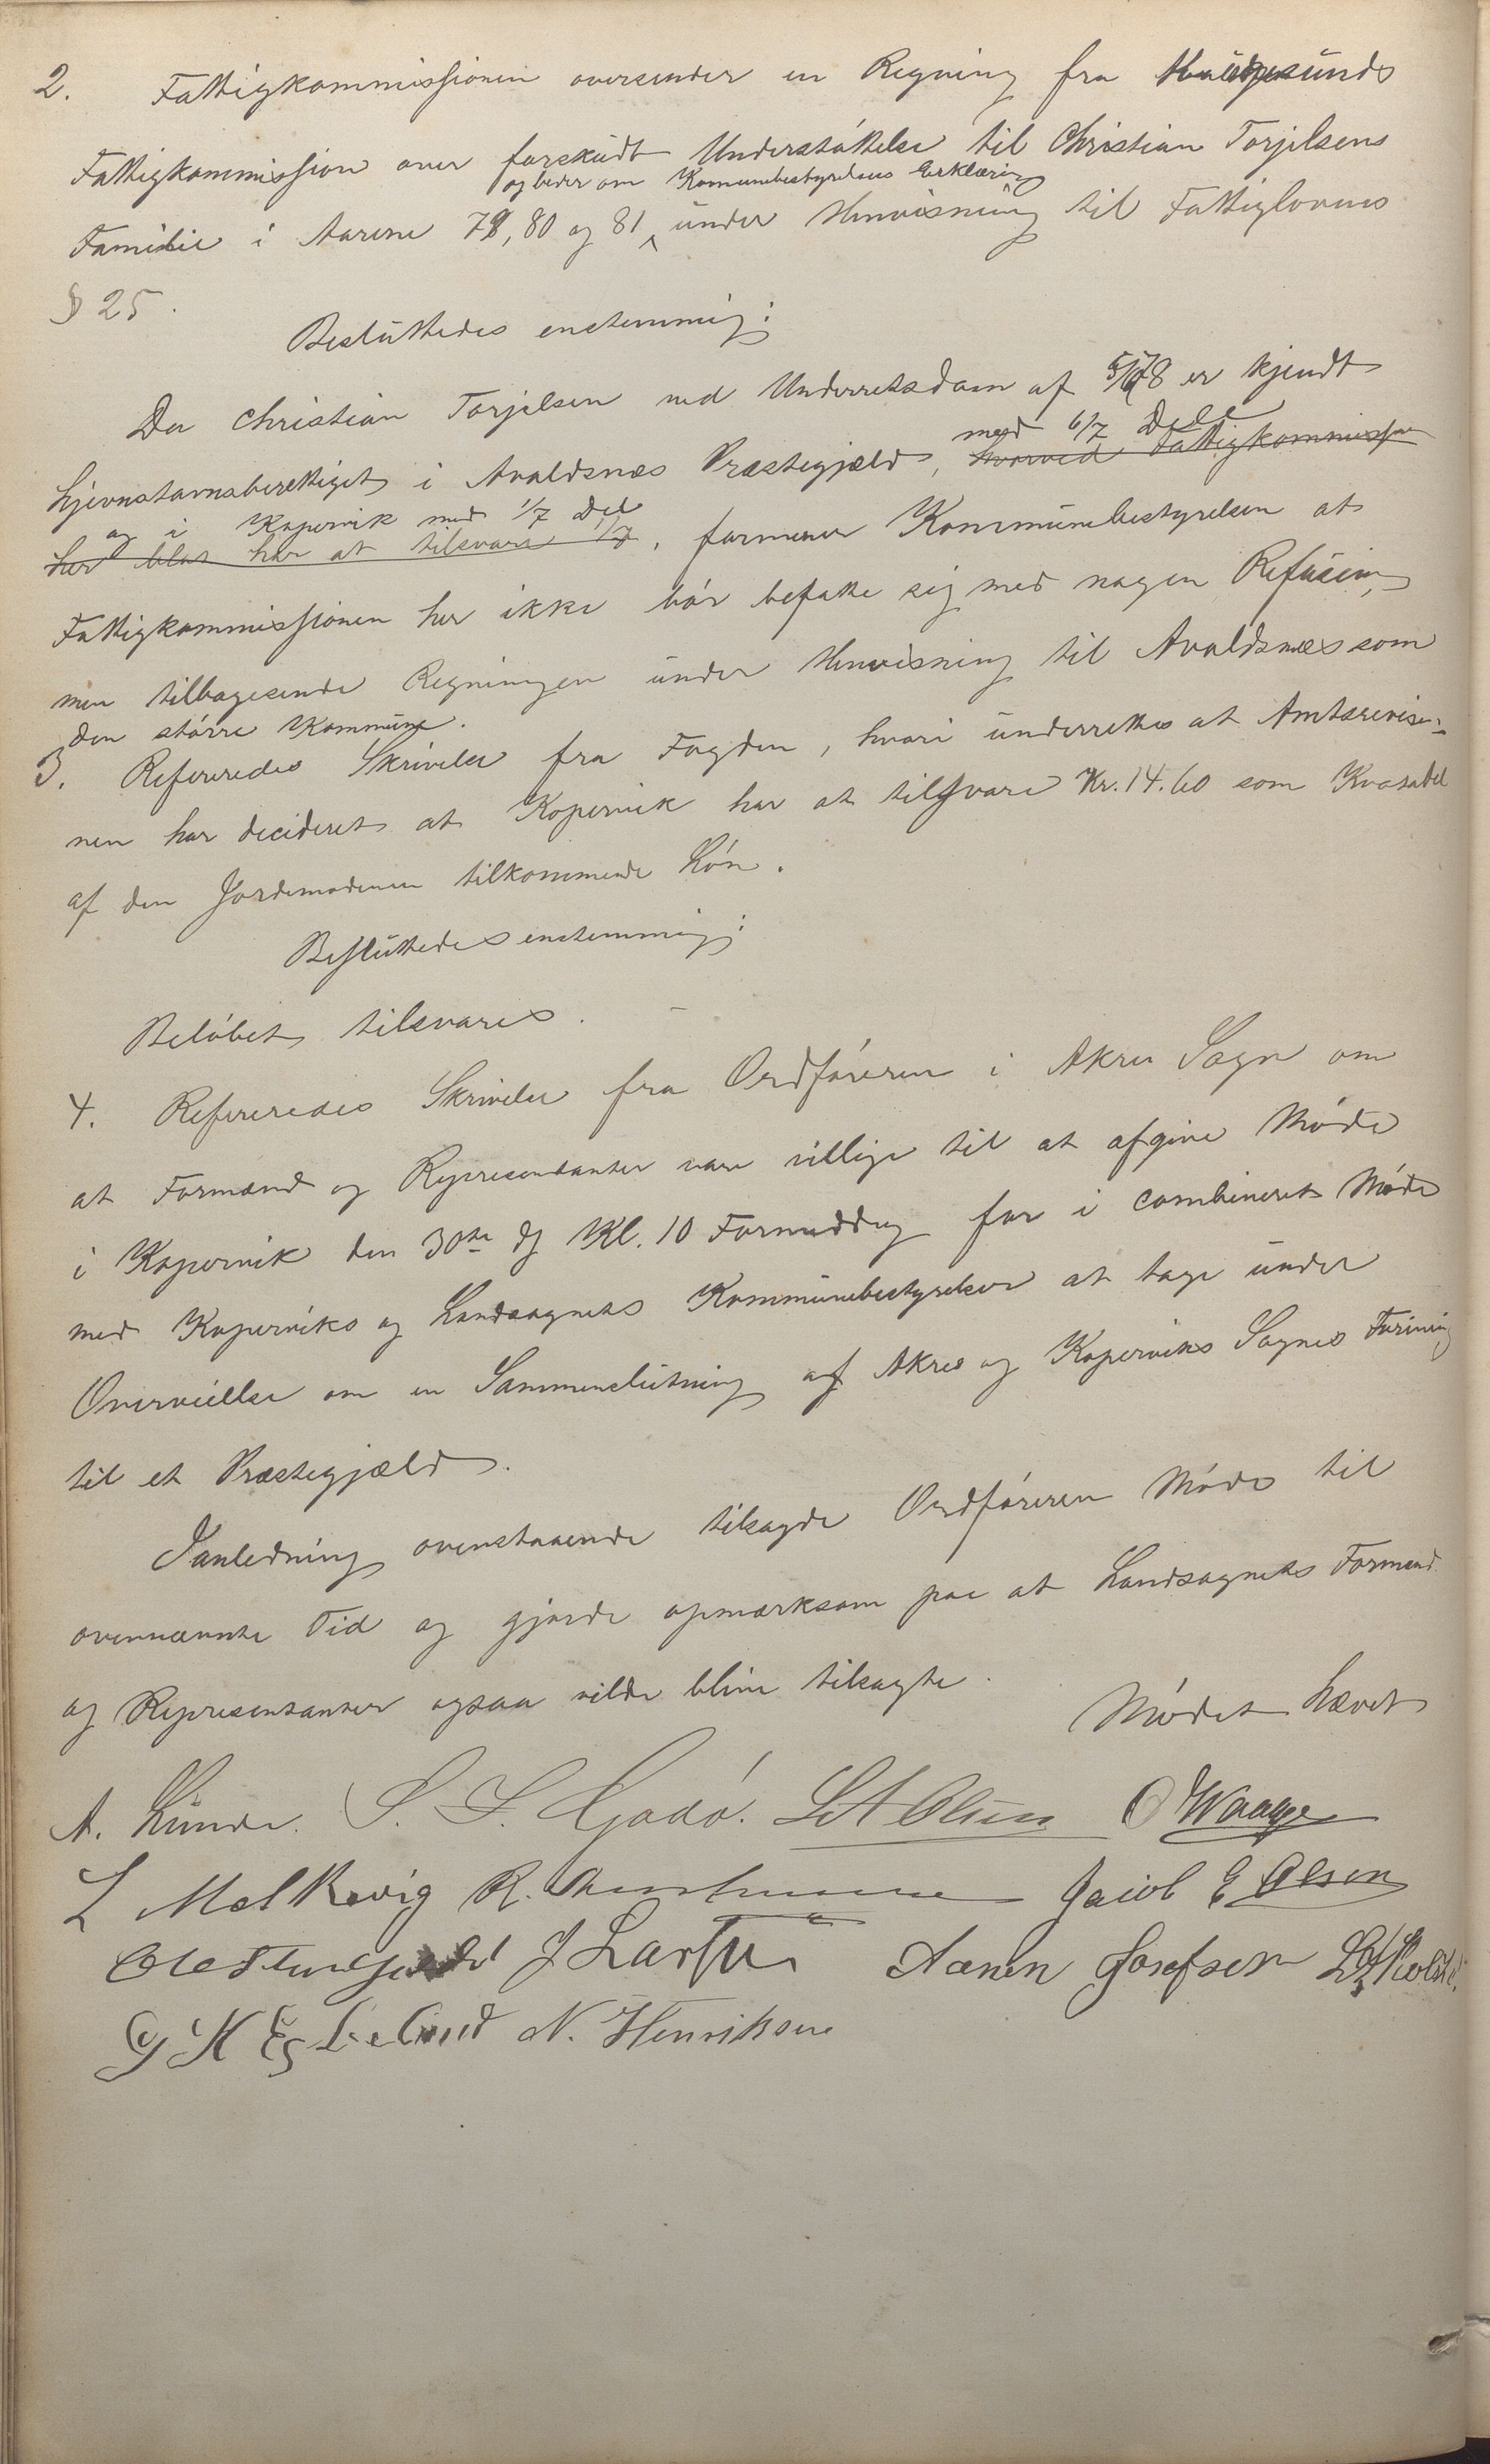 2. Fattigkommissionen oversender en Regning fra Haugesunds
Fattigkommission over forskudt Understøttelse til Christian Torjelsens
og beder om Kommunebestyrelsens Erklæring
Familie i Aarene 79, 80 og 81 under Henvisning til Fattiglovens
§ 25.
Besluttedes enstemmig:
Da Christian Torjelsen ved Underretsdom af 5/6 78 er kjendt
med 6/7 Dele
hjemstavnsberettiget i Avaldsnes Præstegjæld, hvorved Fattigkommission
og i Kopervik med 1/7 Del
her blot har at tilsvare 1/7, formener Kommunebestyrelsen at
Fattigkommissionen her ikke bør befatte sig med nogen Refusion,
men tilbagesende Regningen under Henvisning til Avaldsnes som
den større Kommune.
3. Refereredes Skrivelse fra Fogden, hvori underrettes at Amtsrevisio-
nen har decideret at Kopervik har at tilsvare Kr. 14.60 som Kvotadel
af den Jordemoderen tilkommende Løn.
Besluttedes enstemmig:
Beløbet tilsvares.
4. Refereredes Skrivelse fra Ordføreren i Akre Sogn om
at Formænd og Repræsentanter vare villige til at afgive Møde
i Kopervik den 30te ds Kl. 10 Formiddag for i combineret Møde
med Koperviks og Landsognets Kommunebestyrelser at tage under
Overveielse om en Sammenslutning af Akre og Koperviks Sognes Forening
til et Præstegjæld.
Ianledning ovenstaaende tilsagde Ordføreren Møde til
ovennævnte Tid og gjorde opmærksom paa at Landsognets Formænd
og Repræsentanter ogsaa vilde blive tilsagte.
Mødet hævet
A. Lunde. S. S. Gjødø. O Waage
L Melkevig R. Jacob E Olsen
J Larsen Aanen Josefsen
G K Eskeland N. Henriksen